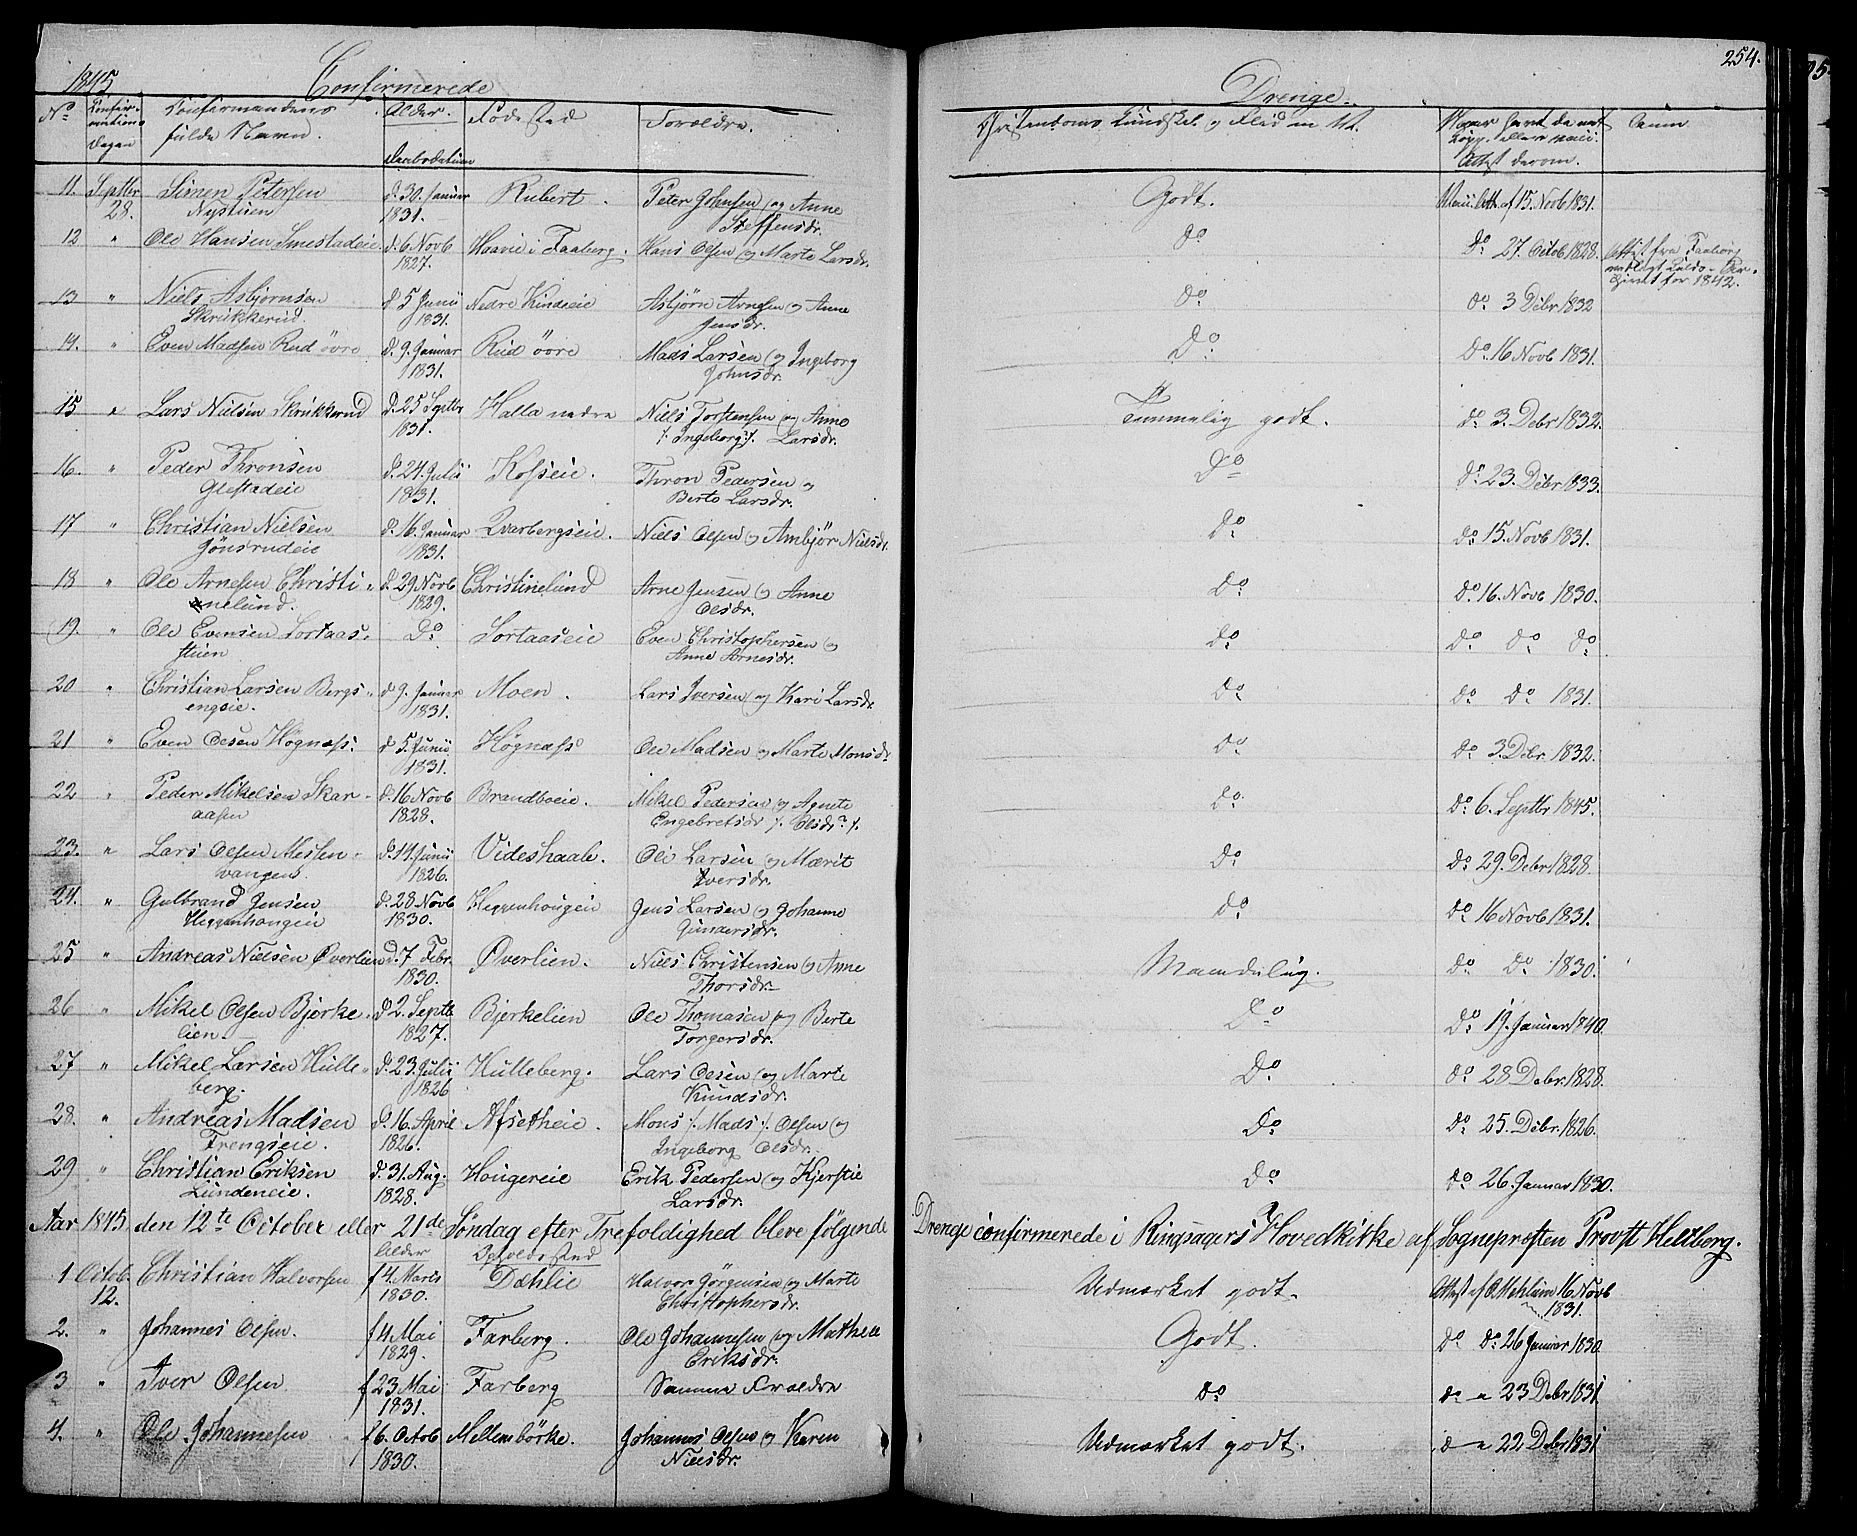 254.
1845.
Confirmerede
Drenge.
No
Confirmations Dagen
Confirmandens fulde Navn.
Alder.
Daabsdatum
Fødested
Forældre.
Christendoms Kundskab og Flid m. V.
Attest derom.
11. Septbr 28. Simen Petersen Nystuen d. 30. Januar 1831. Rubert. Peter Johnsen og Anne Steffensdr. Godt. 15. Novb 1831.
12 " Ole Hansen Smestadeie d. 6 Novb 1827. Haavie i Faaberg. Hans Olsen og Marte Larsdr. do do 27. Octob 1828. Attest fra Faaberg for 1842.
13 " Niels Asbjørnsen Skrukkerud. d 5 Junii 1831. Nedre Kindseie Asbjørn Arnesen og Anne Jensdr. do do 3 Debr 1832
14. " Even Madsen Rud øvre d. 9. Januar 1831. Rud øvre Mads Larsen og Ingeborg Johnsdr. Do do 16 Novb 1831.
15 " Lars Nielsen Skrukkerud d. 25 Septbr 1831. Halla nedre Niels Torstensen og Anne /: Ingeborg :/ Larsdr. Temmelig godt. do 3. Debr 1832.
16. " Peder Thronsen Glestadeie d. 24. Julii 1831. Kosseie. Thron Pedersen og Berte Larsdr. Do do 23. Debr 1833.
17 " Christian Nielsen Jønsrudeie d. 16. Januar 1831. Qvarbergseie. Niels Olsen og Ambjør Nielsdr. do do 15. Novb 1831.
18 " Ole Arnesen Christinelund. d. 29 Novb 1829. Christinelund Arne Jensen og Anne Olsdr. do do 16. Novb 1830.
19. " Ole Evensen Sortaasstuen Do Sortaaseie Even Christophersen og Anne Arnesdr. do do do do
20 " Christian Larsen Bergsengeie. d 9. Januar 1831. Moen. Lars Iversen og Kari Larsdr. do do do 1831.
21 " Even Olsen Høgnæss d 5. Junii 1831. Høgnæss Ole Madsen og Marte Monsdr. do do 3. Debr. 1832.
22 " Peder Mikelsen Skaraasen d. 16 Novb 1828. Brandboeie. Mikel Pedersen og Agnete Engebretsdr /: Olsdr ? :/ do do 6. Septbr 1845.
23. " Lars Olsen Mesenvangen. d. 14. Junii 1826. Videshaale. Ole Larsen og Marit Iversdr. do do 29. Debr 1828.
24. " Gulbrand Jensen Heggenhougeie d. 28 Novb 1830. Heggenhougeie Jens Larsen og Johanne Gundersdr. do do 16 Novb 1831.
25 " Andreas Nielsen Øverlien d. 7 Febr. 1830. Øverlien. Niels Christensen og Anne Thorsdr. Maadelig. do do 1830.
26 " Mikel Olsen Bjerkelien. d 2. Septb 1827. Bjerkelien Ole Thomasen og Berte Torgersdr. Do do 19. Januar 1840.
27 " Mikel Larsen Hulleberg. d. 23. Julii 1826 Hulleberg. Lars Olsen og Marte Knudsdr. Do do 28 Debr 1828.
28. " Andreas Madsen Frengseie. d. 16. April 1826. Afsetheie. Mons /: Mads :/ Olsen og Ingeborg Olsdr. Do do 25. Debr. 1826.
29 " Christian Eriksen Lundeneie. d. 31. Aug. 1828. Hougereie Erik Pedersen og Kjerstie Larsdr. Do do 26. Januar 1830.
Aar 1845 den 12te October eller 21de Søndag efter Trefoldighed bleve følgende Drenge confirmerede i Ringsagers Hovedkirke af Sognepræsten Provst Hertzberg.
Alder Opholdssted
1 Octob. 12. Christian Halvorsen f 4. Marts 1830. Dæhlie Halvor Jørgensen og Marte Christophersdr. Udmærket godt. Attest af O. Mehlum 16 Novb 1831.
2. " Johannes Olsen. f 4 Mai 1829. Farberg. Ole Johannesen og Mathea Eriksdr. Godt. do do 26 Januar 1830.
3 " Iver Olsen f 23 Mai 1831. Farberg Samme Forældre do do " 23 Debr 1831
4. " Ole Johannesen f 6. Octob 1830. Mellembørke. Johannes Olsen og Karen Nielsdr. Udmærket godt. d " 22 Debr 1831